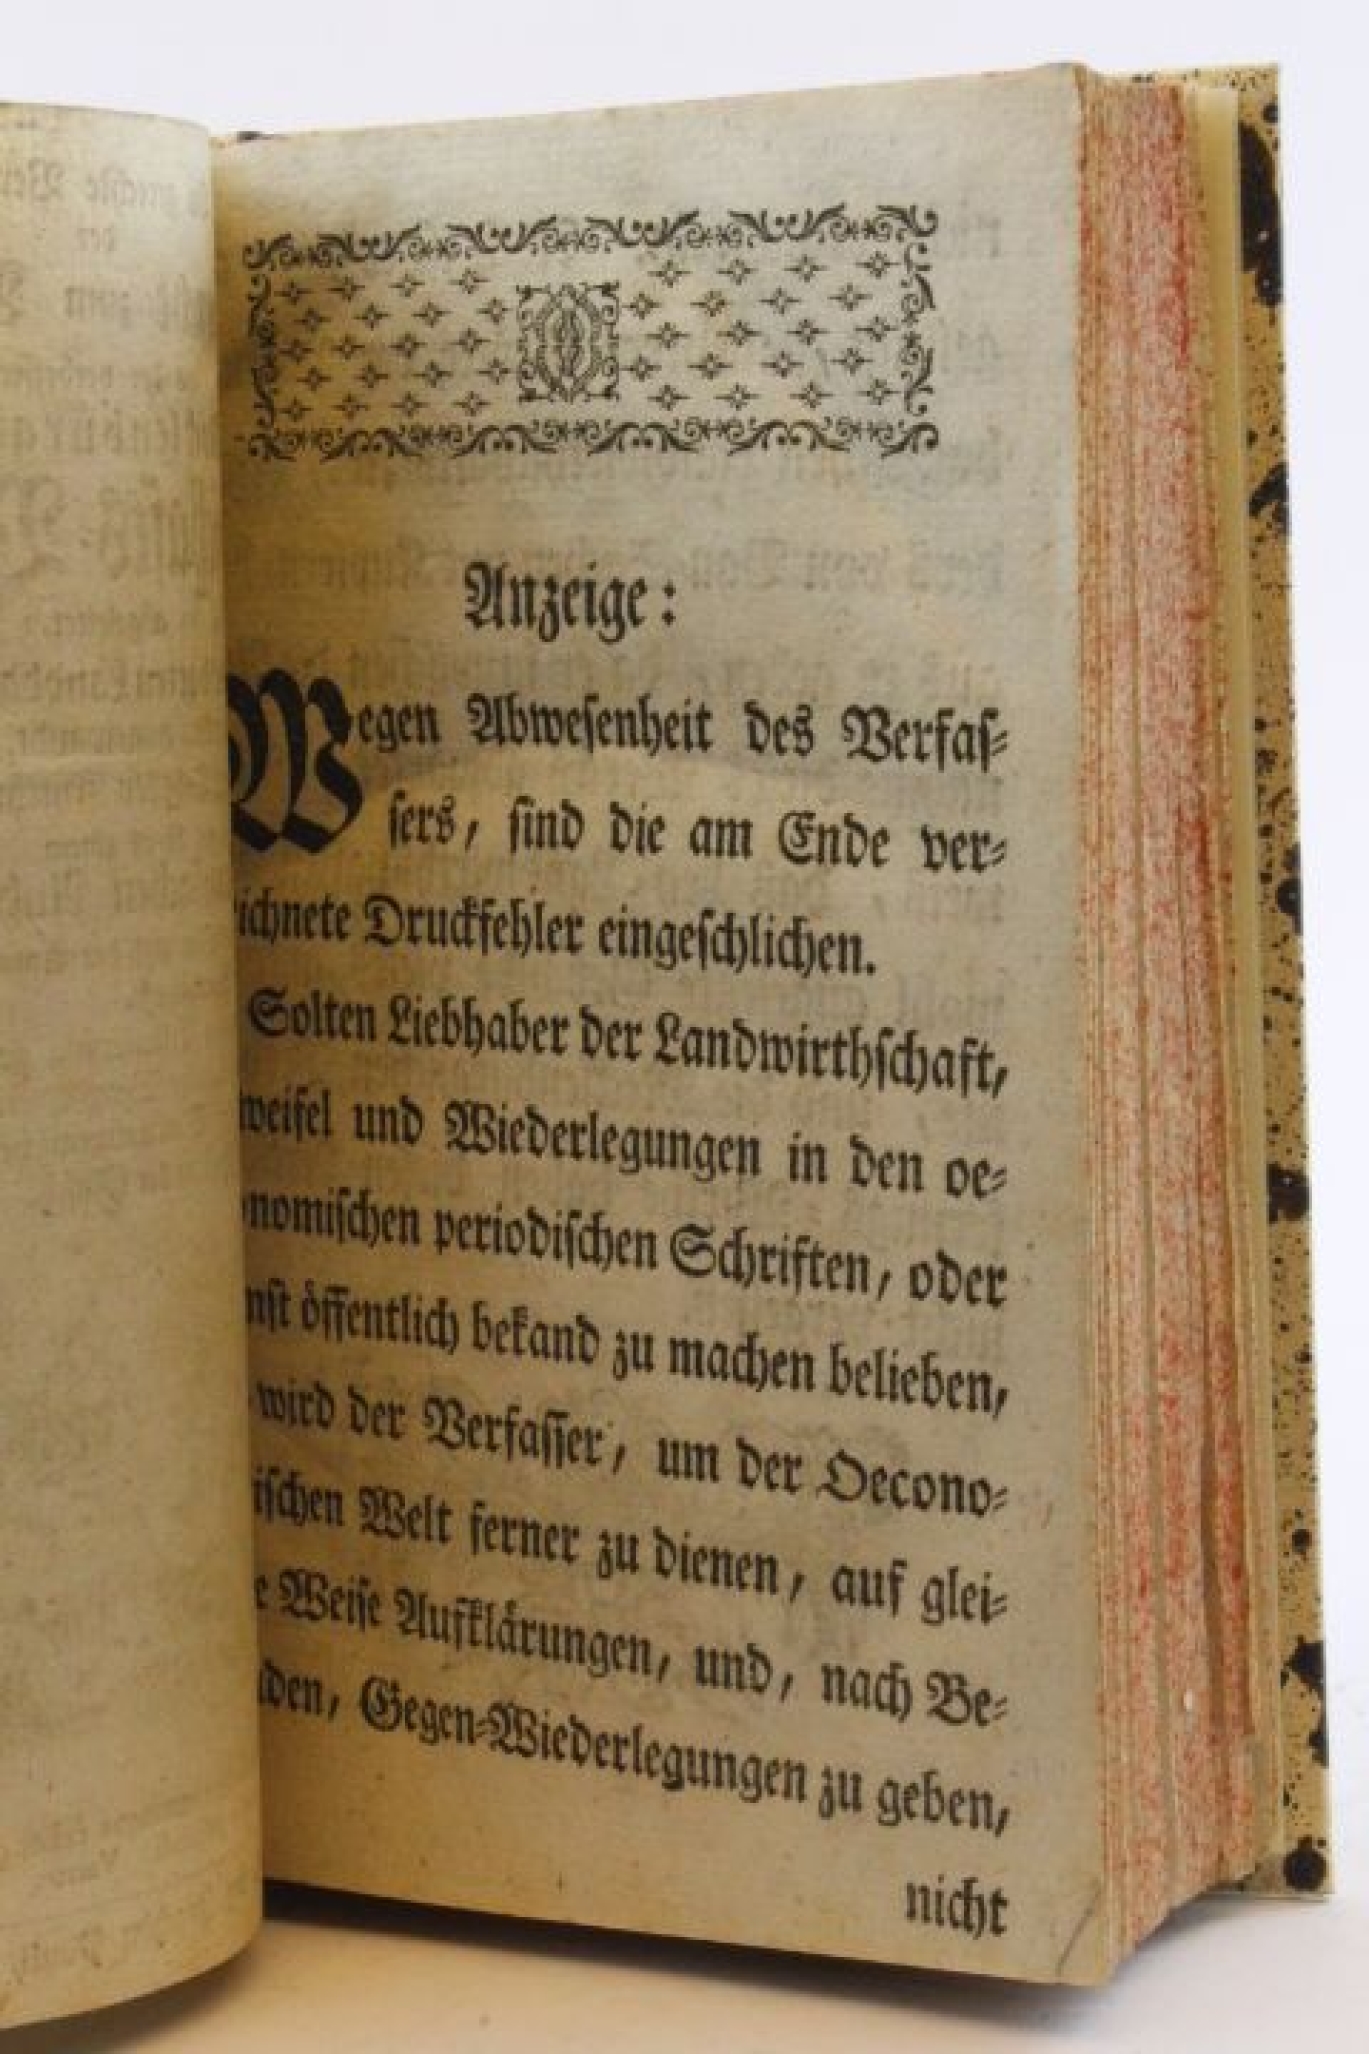 Anzeige:
Wegen Abwesenheit des Verfas-
sers, sind die am Ende ver-
ichnete Druckfehler eingeschlichen.
Solten Liebhaber der Landwirthschaft,
weifel und Wiederlegungen in den oe-
nomischen periodischen Schriften, oder
nst öffentlich bekand zu machen belieben,
wird der Verfasser, um der Oecono-
ischen Welt ferner zu dienen, auf glei-
e Weise Aufklärungen, und, nach Be-
nden, Gegen-Wiederlegungen zu geben,
nicht